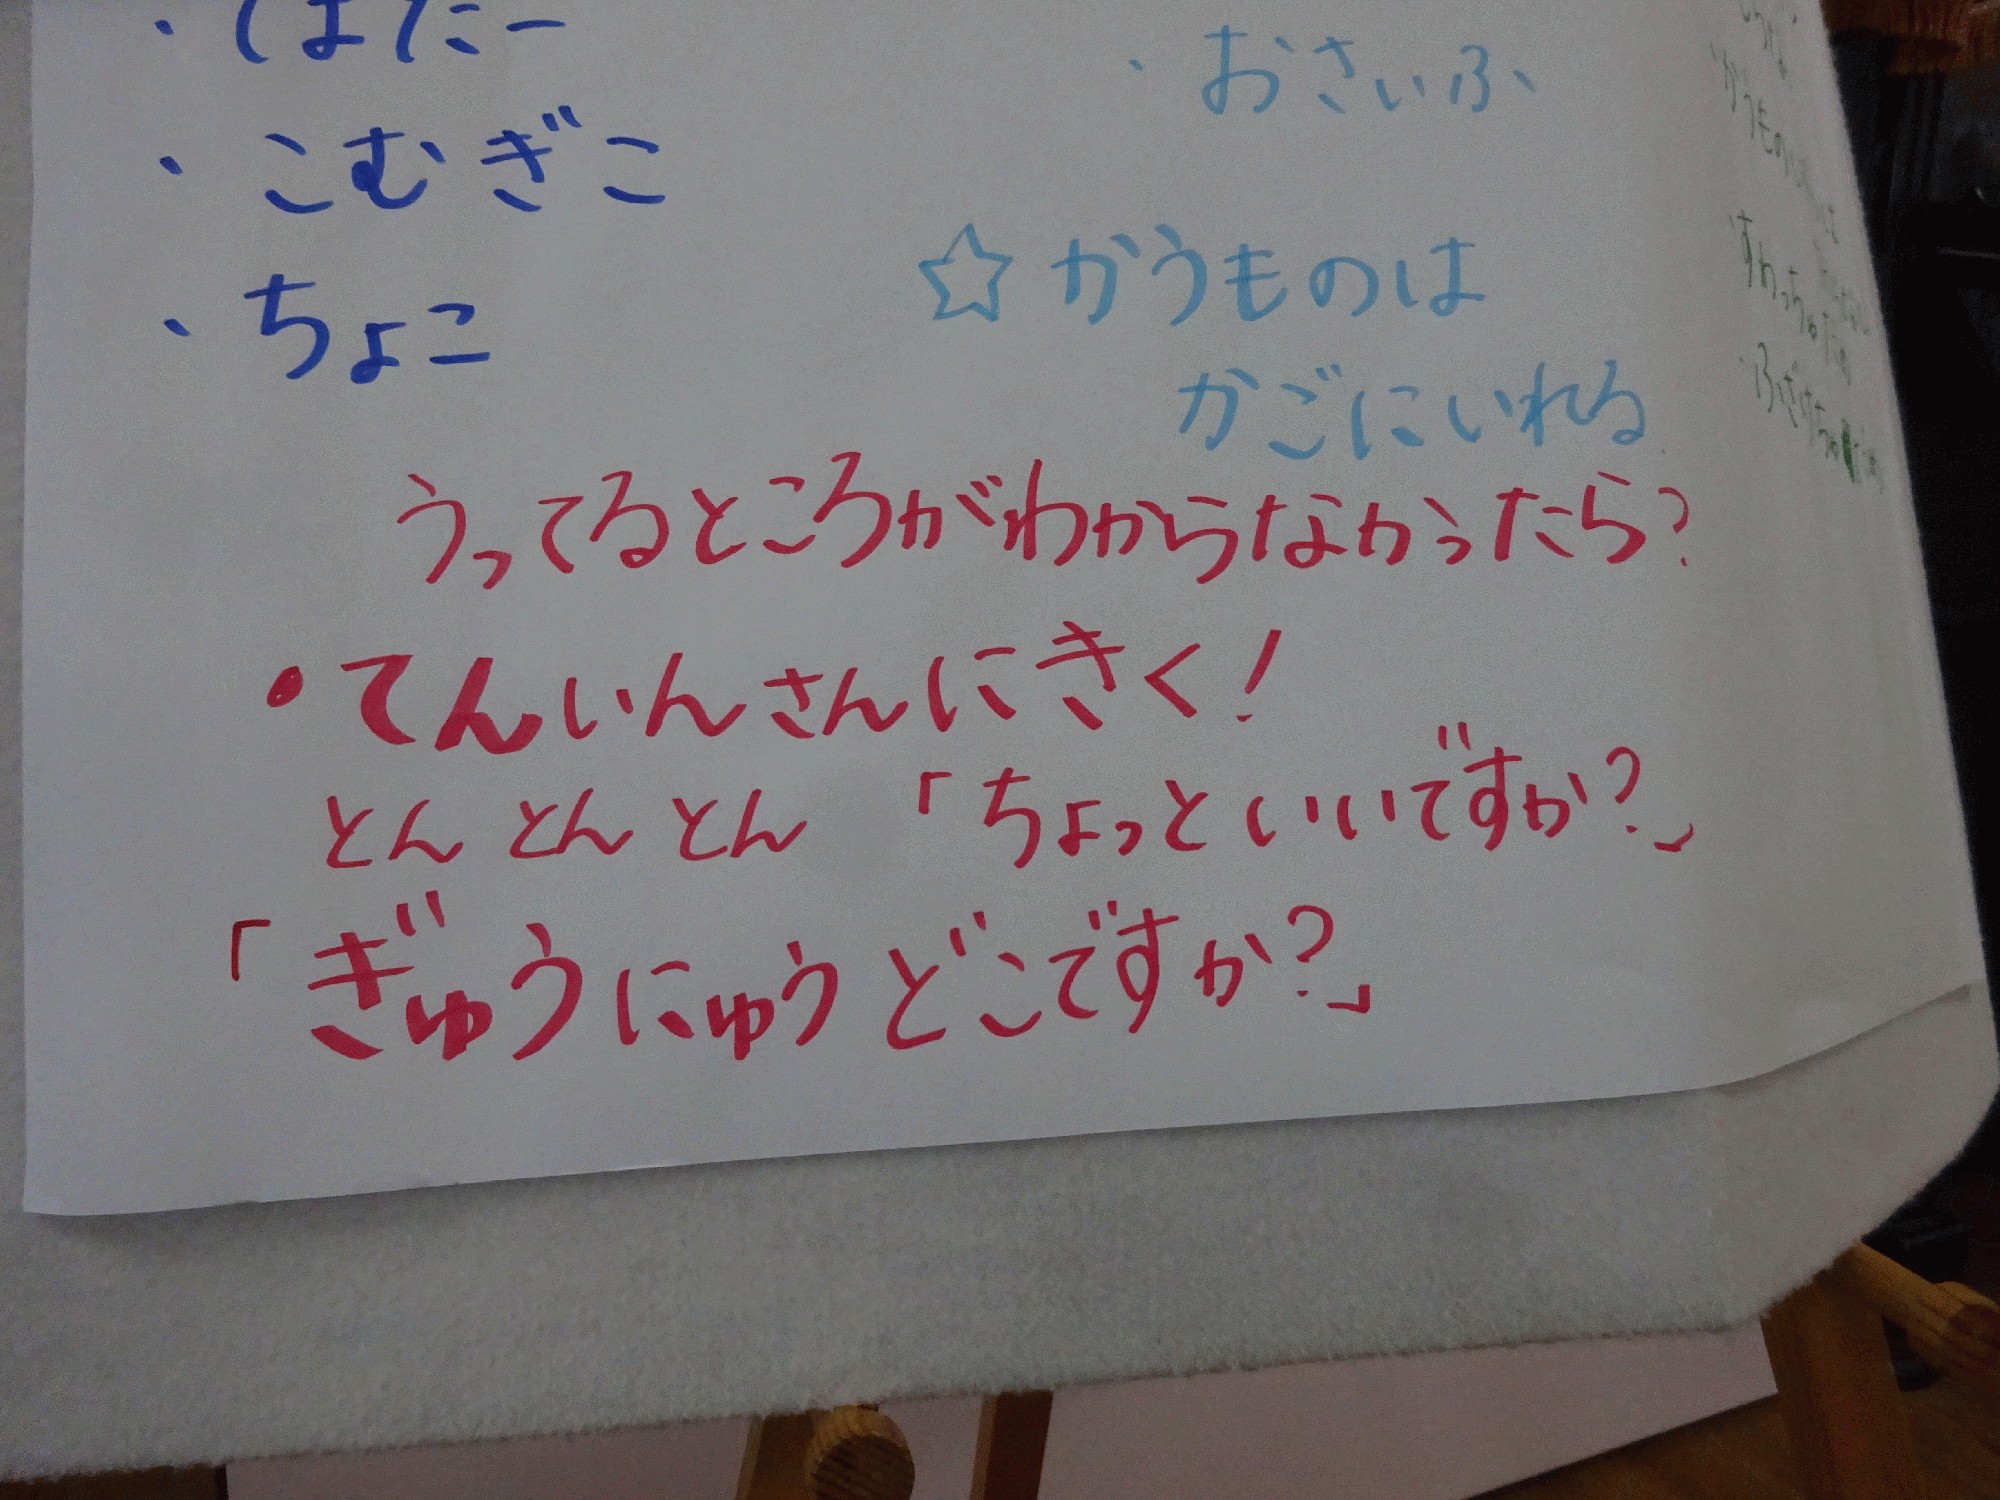 ・ばたー
・こむぎこ
・ちょこ
・おさいふ
☆かうものは
かごにいれる
うってるところがわからなかったら?
・てんいんさんにきく!
とん とん とん 「ちょっといいですか?」
「ぎゅうにゅうどこですか?」